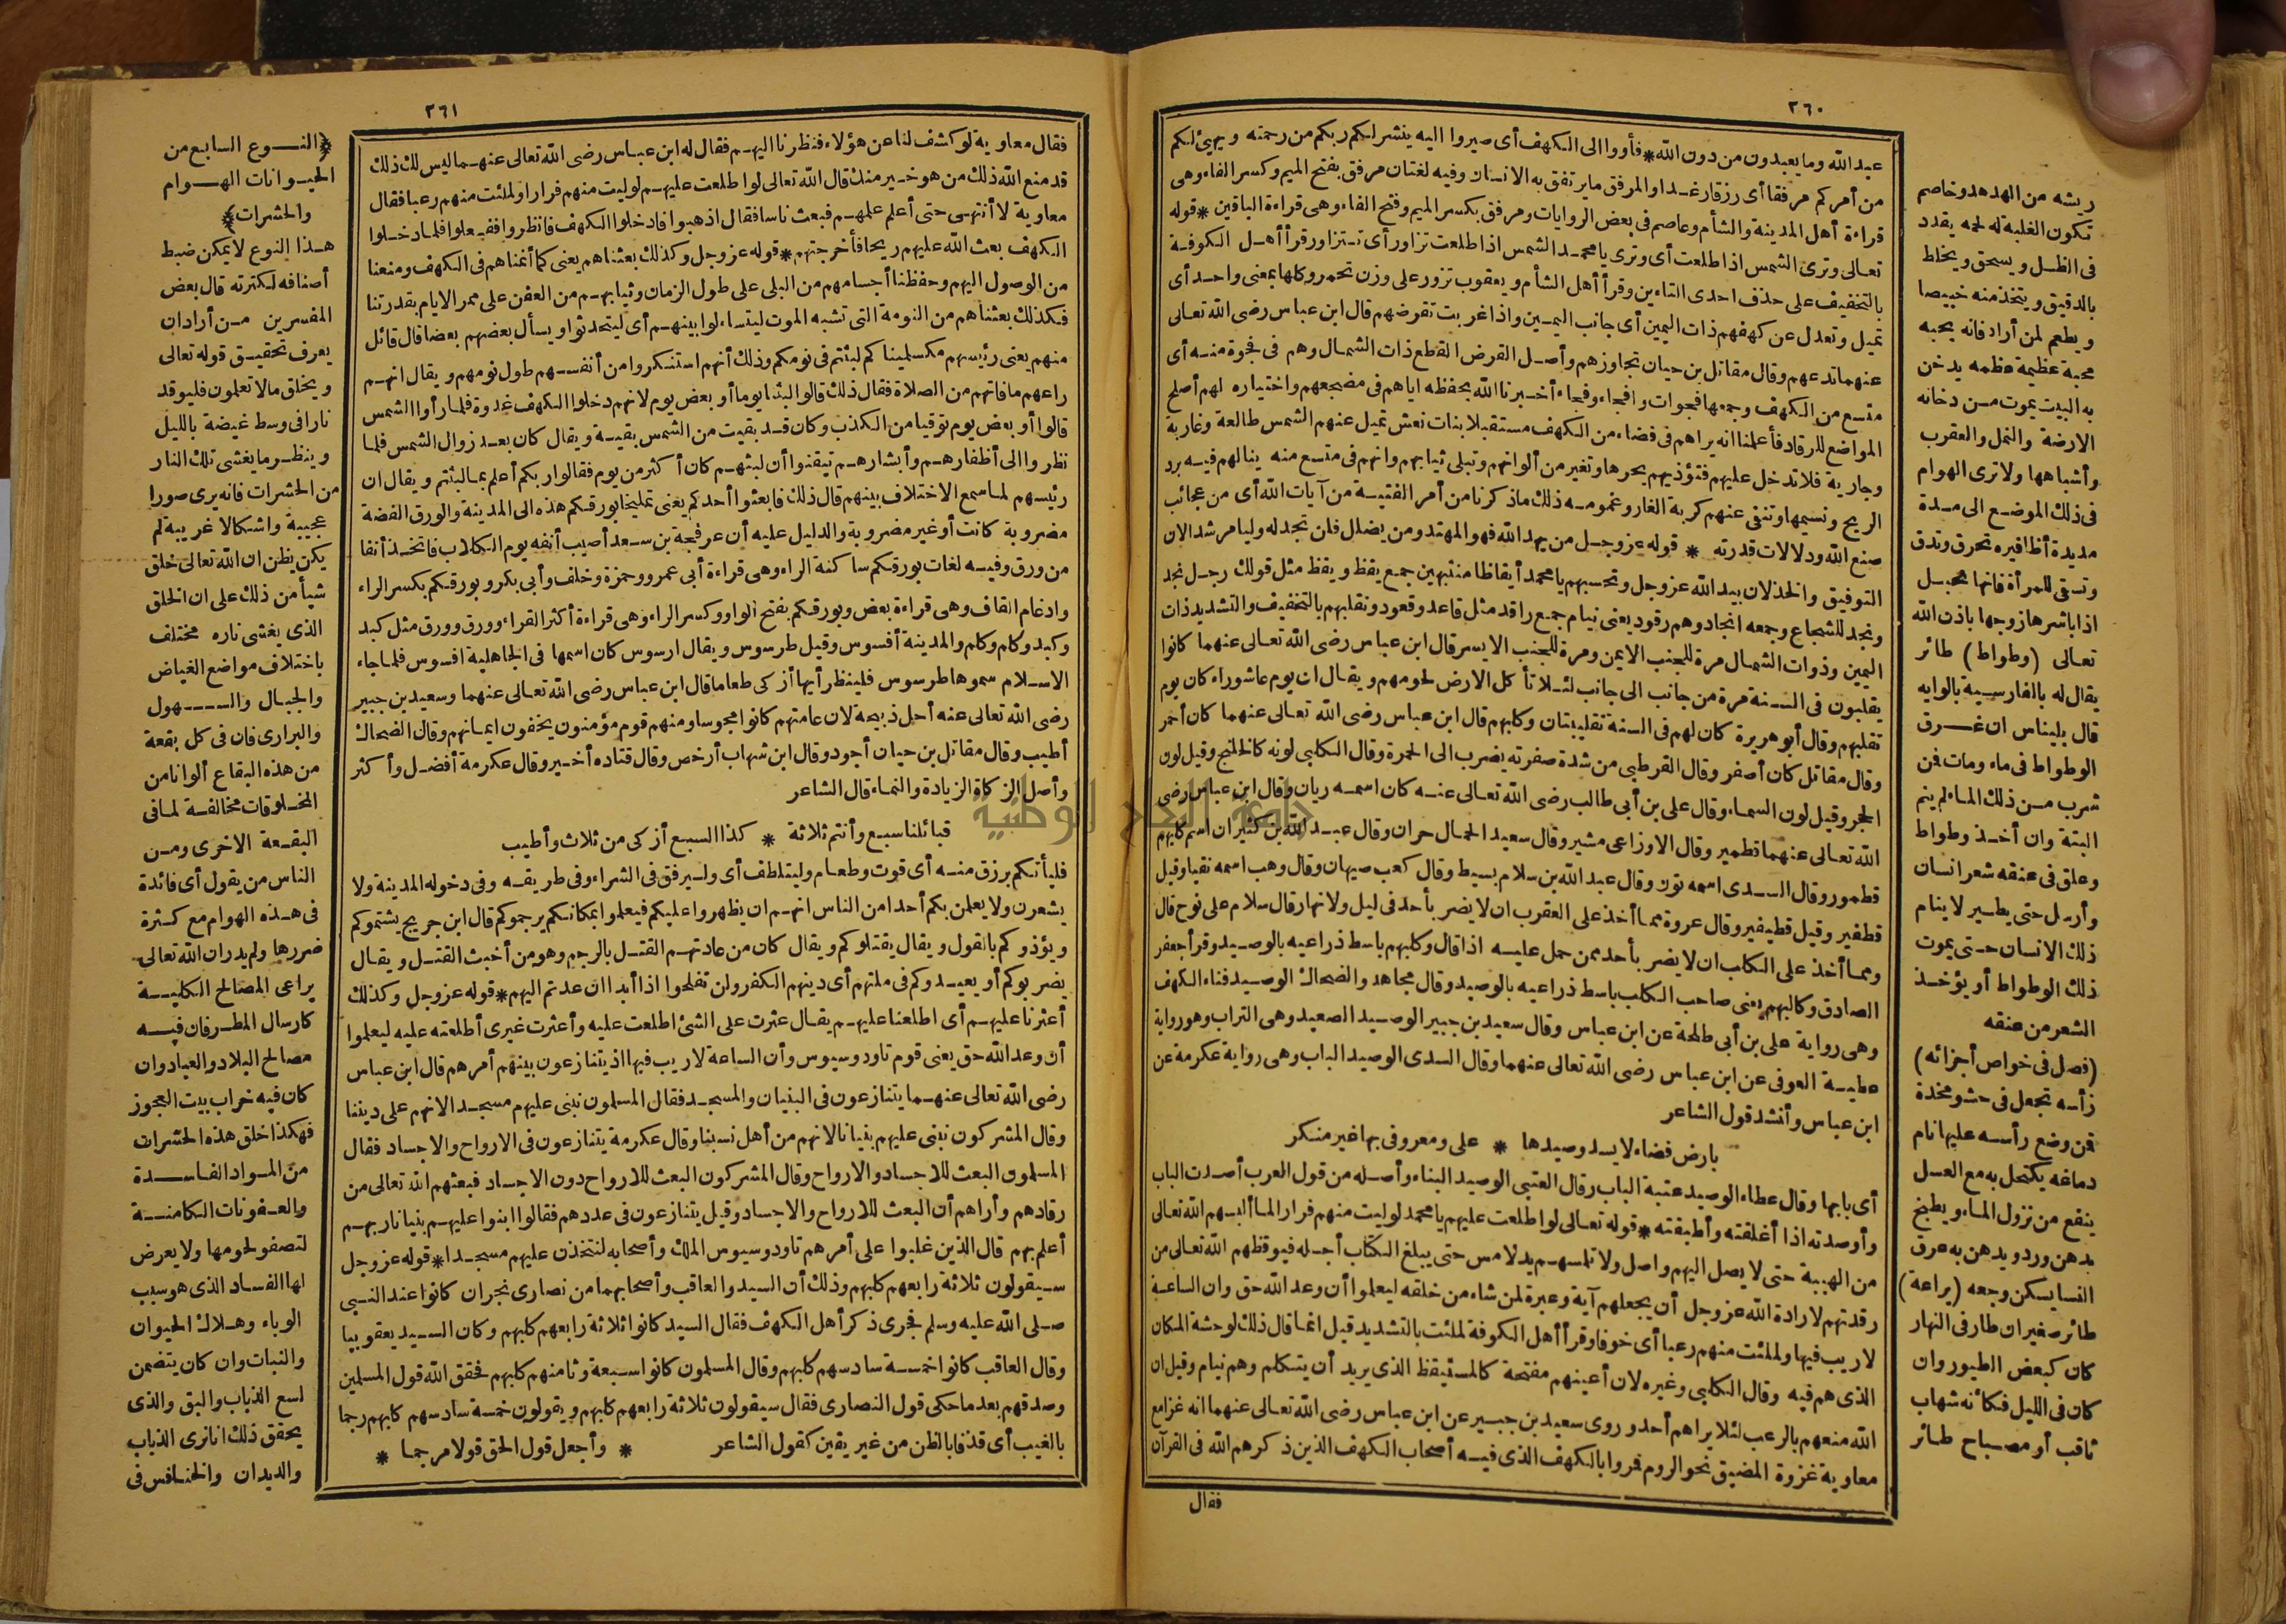 ٣٦٠
عبد الله وما يعبدون من دون الله * فأووا الى الكهف أى صيروا اليه ينشر لكم ربكم من رحمته ويهيئ لكم
من أمركم مرفقا أى رزقا رغدا والمرفق ما يرتفق به الانسان وفيه لغتان مرفق بفتح الميم وكسر الفاء وهى
قراءة أهل المدينة والشأم وعاصم فى بعض الروايات ومرفق بكسر الميم وفتح الفاء وهى قراءة الباقين * قوله
تعالى وترى الشمس اذا طلعت أى وترى يا محمد الشمس اذا طلعت تزاور أى تتزاور قرأ أهل الكوفة
بالتخفيف على حذف احدى التاءين وقرأ أهل الشأم ويعقوب تزور على وزن تحمر وكلها بمعنى واحد أى
تميل وتعدل عن كهفهم ذات اليمين أى جانب اليمين واذا غربت تقرضهم قال ابن عباس رضى الله تعالى
عنهما تدعهم وقال مقاتل بن حيان تجاوزهم وأصل القرض القطع ذات الشمال وهم فى فجوة منه أى
متسع من الكهف وجمعها فجوات وافجاء وفجاء أخبرنا الله بحفظه اياهم فى مضجعهم واختياره لهم أصلح
المواضع للرقاد فأعلمنا انه يراهم فى فضاء من الكهف مستقبلا بنات نعش تميل عنهم الشمس طالعة وغاربة
وجارية فلا تدخل عليهم فتؤذيهم بحرها وتغير من ألوانهم وتبلى ثيابهم وانهم فى متسع منه ينالهم فيه برد
الريح ونسيمها وتنفى عنهم كربة الغار وغمومه ذلك ماذكرنا من أمر الفتية من آيات الله أى من عجائب
صنع الله ودلالات قدرته * قوله عز وجل من يهد الله فهو المهتد ومن يضلل فلن تجد له وليا مرشدا لان
التوفيق والخذلان بيد الله عز وجل وتحسبهم يا محمد أيقاظا منتبهين جمع يقظ ويقظ مثل قولك رجل نجد
ونجد للشجاع وجمعه انجاد وهم رقود يعنى نيام جمع راقد مثل قاعد وقعود ونقلبهم بالتخفيف والتشديد ذات
اليمين وذوات الشمال مرة للجنب الايمن ومرة للجنب الايسر قال ابن عباس رضى الله تعالى عنهما كانوا
يقلبون فى السنة مرة من جانب الى جانب لئلا تأكل الارض لحومهم ويقال ان يوم عاشوراء كان يوم
تقلبهم وقال أبو هريرة كان لهم فى السنة تقليبتان وكلبهم قال ابن عباس رضى الله تعالى عنهما كان أحمر
وقال مقاتل كان أصفر وقال القرطبى من شدة صفرته يضرب الى الحمرة وقال الكلبى لونه كالخلنج وقيل لون
الحجر وقيل لون السماء وقال على بن أبى طالب رضى الله تعالى عنه كان اسمه ريان وقال ابن عباس رضى
الله تعالى عنهما قطمير وقال الاوزاعى مشير وقال سعيد الحمال حران وقال عبد الله بن كثير ان اسم كلبهم
قطمور وقال السدى اسمه تون وقال عبد الله بن سلام بسيط وقال كعب صهبان وقال وهب اسمه نقيا وقيل
قطفير وقيل قطيفير وقال عروة مما أخذ على العقرب ان لا يضر بأحد فى ليل ولا نهار قال سلام على نوح قال
ومما أخذ على الكلب ان لا يضر بأحد ممن حمل عليه اذا قال وكلبهم باسط ذراعيه بالوصيد وقرأ جعفر
الصادق وكالبهم يعنى صاحب الكلب باسط ذراعيه بالوصيد وقال مجاهد والضحاك الوصيد فناء الكهف
وهى رواية على بن أبى طلحة عن ابن عباس وقال سعيد بن جبير الوصيد الصعيد وهى التراب وهو رواية
عطية العوفى عن ابن عباس رضى الله تعالى عنهما وقال السدى الوصيد الباب وهى رواية عكرمة عن
ابن عباس وأنشد قول الشاعر
بارض فضاء لا يسد وصيدها * على ومعروفى بها غير منكر
أى بابها وقال عطاء الوصيد عتبة الباب وقال العتبى الوصيد البناء وأصله من قول العرب أصدت الباب
وأوصدته اذا أغلقته وأطبقته * قوله تعالى لو اطلعت عليهم يا محمد لوليت منهم فرارا لما ألبسهم الله تعالى
من الهيبة حتى لا يصل اليهم واصل ولا تلمسهم يد لامس حتى يبلغ الكتاب أجله فيوقظهم الله تعالى من
رقدتهم لارادة الله عز وجل أن يجعلهم آية وعبرة لمن شاء من خلقه ليعلموا أن وعد الله حق وان الساعة
لا ريب فيها ولملئت منهم رعبا أى خوفا وقرأ أهل الكوفة لملئت بالتشديد قيل انما قال ذلك لوحشة المكان
الذى هم فيه وقال الكلبى وغيره لان أعينهم مفتحة كالمستيقظ الذى يريد أن يتكلم وهم نيام وقيل ان
الله منعهم بالرعب لئلا يراهم أحد وروى سعيد بن جبير عن ابن عباس رضى الله تعالى عنهما انه غزا مع
معاوية غزوة المضيق نحو الروم فمروا بالكهف الذى فيه أصحاب الكهف الذين ذكرهم الله فى القرآن
فقال
ريشه من الهدهد وخاصم
تكون الغلبة له لحمه يقدد
فى الظل ويسحق ويخلط
بالدقيق ويتخذ منه خبيصا
ويطعم لمن أراد فانه يحبه
محبة عظيمة عظمه يدخن
به البيت يموت من دخانه
الارضة والنمل والعقرب
وأشباهها ولا ترى الهوام
فى ذلك الموضع الى مدة
مديدة أظافيره تحرق وتدق
وتسقى للمرأة فانها تحبل
اذا باشرها زوجها باذن الله
تعالى (وطواط) طائر
يقال له بالفارسية بالوايه
قال بليناس ان غرق
الوطواط فى ماء ومات فمن
شرب من ذلك الماء لم ينم
البتة وان أخذ وطواط
وعلق فى عنقه شعر انسان
وأرسل حتى يطير لا ينام
ذلك الانسان حتى يموت
ذلك الوطواط أو يؤخذ
الشعر من عنقه
(فصل فى خواص أجزائه)
رأسه تجعل فى حشو مخدة
فمن وضع رأسه عليها نام
دماغه يكتحل به مع العسل
ينفع من نزول الماء ويطبخ
بدهن ورد ويدهن به عرق
النسا يسكن وجعه (يراعة)
طائر صغير ان طار فى النهار
كان كبعض الطيور وان
كان فى الليل فكأنه شهاب
ثاقب أو مصباح طائر
٣٦١
فقال معاوية لو كشف لنا عن هؤلاء فنظرنا اليهم فقال له ابن عباس رضى الله تعالى عنهما ليس لك ذلك
قد منع الله ذلك من هو خير منك قال الله تعالى لو اطلعت عليهم لوليت منهم فرارا ولملئت منهم رعبا فقال
معاوية لا أنتهى حتى أعلم علمهم فبعث ناسا فقال اذهبوا فادخلوا الكهف فانظروا ففعلوا فلما دخلوا
الكهف بعث الله عليهم ريحا فأخرجتهم * قوله عز وجل وكذلك بعثناهم يعنى كما أنمناهم فى الكهف ومنعنا
من الوصول اليهم وحفظنا أجسامهم من البلى على طول الزمان وثيابهم من العفن على ممر الايام بقدرتنا
فكذلك بعثناهم من النومة التى تشبه الموت ليتساءلوا بينهم أى ليتحدثوا ويسأل بعضهم بعضا قال قائل
منهم يعنى رئيسهم مكسلمينا كم لبثتم فى نومكم وذلك أنهم استنكروا من أنفسهم طول نومهم ويقال انهم
راعهم ما فاتهم من الصلاة فقال ذلك قالوا لبثنا يوما أو بعض يوم لانهم دخلوا الكهف غدوة فلما رأوا الشمس
قالوا أو بعض يوم توقيا من الكذب وكان قد بقيت من الشمس بقية ويقال كان بعد زوال الشمس فلما
نظروا الى أظفارهم وأبشارهم تيقنوا أن لبثهم كان أكثر من يوم فقالوا ربكم أعلم بما لبثتم ويقال ان
رئيسهم لما سمع الاختلاف بينهم قال ذلك فابعثوا أحدكم يعنى تمليخا بورقكم هذه الى المدينة والورق الفضة
مضروبة كانت أو غير مضروبة والدليل عليه أن عرفجة بن سعد أصيب أنفه يوم الكلاب فاتخذ أنفا
من ورق وفيه لغات بورقكم ساكنة الراء وهى قراءة أبى عمرو وحمزة وخلف وأبى بكر وبورقكم بكسر الراء
وادغام القاف وهى قراءة بعض وبورقكم بفتح الواو وكسر الراء وهى قراءة أكثر القراء وورق وورق مثل كبد
وكبد وكلم وكلم والمدينة أفسوس وقيل طرسوس ويقال ارسوس كان اسمها فى الجاهلية افسوس فلما جاء
الاسلام سموها طرسوس فلينظر أيها أزكى طعاما قال ابن عباس رضى الله تعالى عنهما وسعيد بن جبير
رضى الله تعالى عنه أحل ذبيحة لان عامتهم كانوا مجوسا ومنهم قوم مؤمنون يخفون ايمانهم وقال الضحاك
أطيب وقال مقاتل بن حيان أجود وقال ابن شهاب أرخص وقال قتاده أخير وقال عكرمة أفضل وأكثر
وأصل الزكاة الزيادة والنماء قال الشاعر
قبائلنا سبع وأنتم ثلاثة * كذا السبع أزكى من ثلاث وأطيب
فليأتكم برزق منه أى قوت وطعام وليتلطف أى وليترفق فى الشراء وفى طريقه وفى دخوله المدينة ولا
يشعرن ولا يعلمن بكم أحدا من الناس انهم ان يظهروا عليكم فيعلموا بمكانكم يرجموكم قال ابن جريج يشتموكم
ويؤذوكم بالقول ويقال يقتلوكم ويقال كان من عادتهم القتل بالرجم وهو من أخبث القتل ويقال
يضربوكم أو يعيدوكم فى ملتهم أى دينهم الكفر ولن تفلحوا اذا أبدا ان عدتم اليهم * قوله عز وجل وكذلك
أعثرنا عليهم أى اطلعنا عليهم يقال عثرت على الشئ اطلعت عليه وأعثرت غيرى أطلعته عليه ليعلموا
أن وعد الله حق يعنى قوم تاودوسيوس وأن الساعة لا ريب فيها اذ يتنازعون بينهم أمرهم قال ابن عباس
رضى الله تعالى عنهما يتنازعون فى البنيان والمسجد فقال المسلمون نبنى عليهم مسجدا لانهم على ديننا
وقال المشركون نبنى عليهم بنيانا لانهم من أهل نسبنا وقال عكرمة يتنازعون فى الارواح والاجساد فقال
المسلمون البعث للاجساد والارواح وقال المشركون البعث للارواح دون الاجساد فبعثهم الله تعالى من
رقادهم وأراهم أن البعث للارواح والاجساد وقيل يتنازعون فى عددهم فقالوا ابنوا عليهم بنيانا ربهم
أعلم بهم قال الذين غلبوا على أمرهم تاودوسيوس الملك وأصحابه لنتخذن عليهم مسجدا * قوله عز وجل
سيقولون ثلاثة رابعهم كلبهم وذلك أن السيد والعاقب وأصحابهما من نصارى نجران كانوا عند النبى
صلى الله عليه وسلم فجرى ذكر أهل الكهف فقال السيد كانوا ثلاثة رابعهم كلبهم وكان السيد يعقوبيا
وقال العاقب كانوا خمسة سادسهم كلبهم وقال المسلمون كانوا سبعة وثامنهم كلبهم فحقق الله قول المسلمين
وصدقهم بعد ما حكى قول النصارى فقال سيقولون ثلاثة رابعهم كلبهم ويقولون خمسة سادسهم كلبهم رجما
بالغيب أى قذفا بالظن من غير يقين كقول الشاعر * وأجعل قول الحق قولا مرجما *
﴿النوع السابع من
الحيوانات الهوام
والحشرات﴾
هذا النوع لا يمكن ضبط
أصنافه لكثرته قال بعض
المفسرين من أراد ان
يعرف تحقيق قوله تعالى
ويخلق ما لا تعلمون فليوقد
نارا فى وسط غيضة بالليل
وينظر ما يغشى تلك النار
من الحشرات فانه يرى صورا
عجيبة واشكالا غريبة لم
يكن يظن ان الله تعالى خلق
شيأ من ذلك على ان الخلق
الذى يغشى ناره مختلف
باختلاف مواضع الغياض
والجبال والسهول
والبرارى فان فى كل بقعة
من هذه البقاع ألوانا من
المخلوقات مخالفة لما فى
البقعة الاخرى ومن
الناس من يقول أى فائدة
فى هذه الهوام مع كثرة
ضررها ولم يدر ان الله تعالى
يراعى المصالح الكلية
كارسال المطر فان فيه
مصالح البلاد والعباد وان
كان فيه خراب بيت العجوز
فهكذا خلق هذه الحشرات
من المواد الفاسدة
والعفونات الكامنة
لتصفو لحومها ولا يعرض
لها الفساد الذى هو سبب
الوباء وهلاك الحيوان
والنبات وان كان يتضمن
لسع الذباب والبق والذى
يحقق ذلك انا نرى الذباب
والديدان والخنافس فى
جامعة النجاح الوطنية